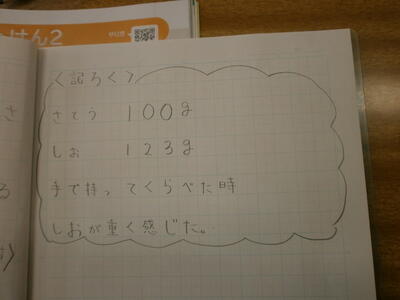 けん2
〈記ろく〉
さとう 100g
しお 123g
手で持ってくらべた時
しおが重く感じた。
さ
る